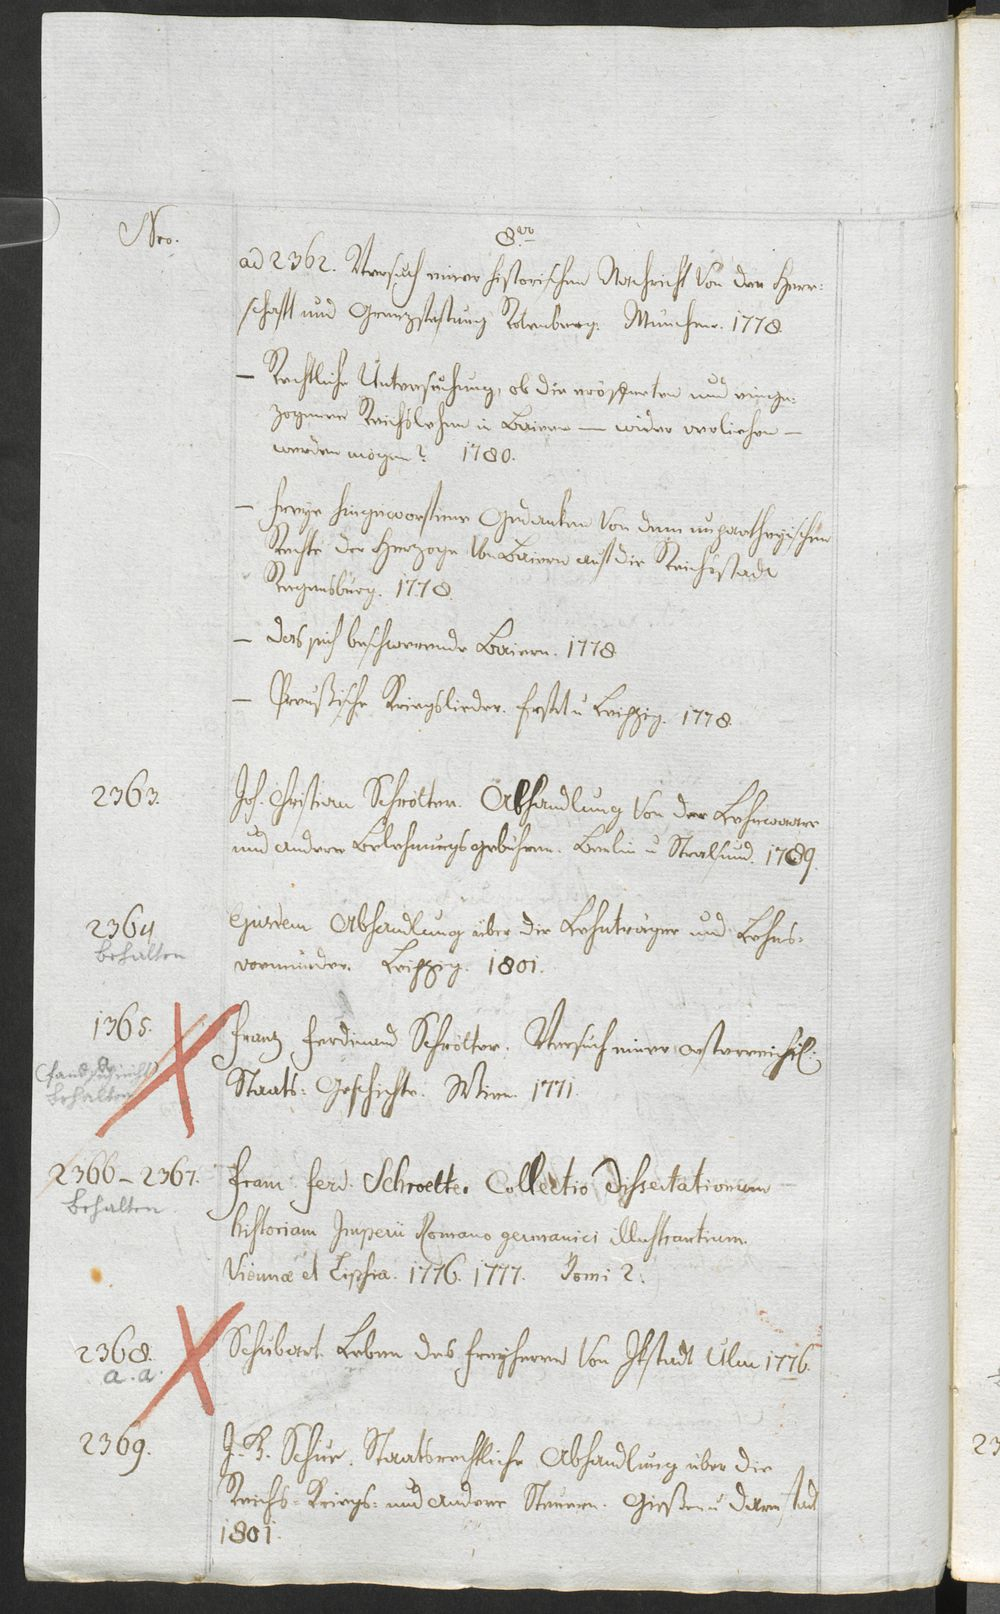 Nro.
8vo
ad 2362. Versuch einer historischen Nachricht von der Herr-
schafft und Grenzfestung Rotenberg. München. 1778.
— Rechtliche Untersuchung, ob die eröffneten und einge-
zogenen Reichslehen in Baiern — wider verliehen —
werden mögen? 1780.
— Freye hingeworfene Gedanken von dem unpartheyischen
Rechte der Herzoge von Baiern auf die Reichsstadt
Regensburg. 1778.
— Das sich beschwerende Baiern. 1778
— Preußische Kriegslieder. Frfkt u Leipzig. 1778.
2363. Joh. Christian Schröter. Abhandlung von der Lehnwaare
und andern Belehnungsgebühren. Berlin u Stralsund. 1789.
2364 Ejusdem Abhandlung über die Lehnträger und Lehns-
behalten
vormünder. Leipzig. 1801.
1365. Franz Ferdinand Schrötter. Versuch einer österreichis.
(fand sich nicht)
behalten
Staats-Geschichte. Wien. 1771.
2366 – 2367. Franc. Ferd. Schroetter Collectio Dissertationum
behalten
historiam Imperii Romano germanici illustrantium.
Viennæ et Lipsia. 1776. 1777. Tomi 2.
2368. Schubart. Leben des Freyherrn von Ikstadt Ulm 1776.
a. a.
2369. J. K. Schue. Staatsrechtliche Abhandlung über die
Reichs-Kriegs- und andere Steuern. Giessen u Darmstadt
1801.